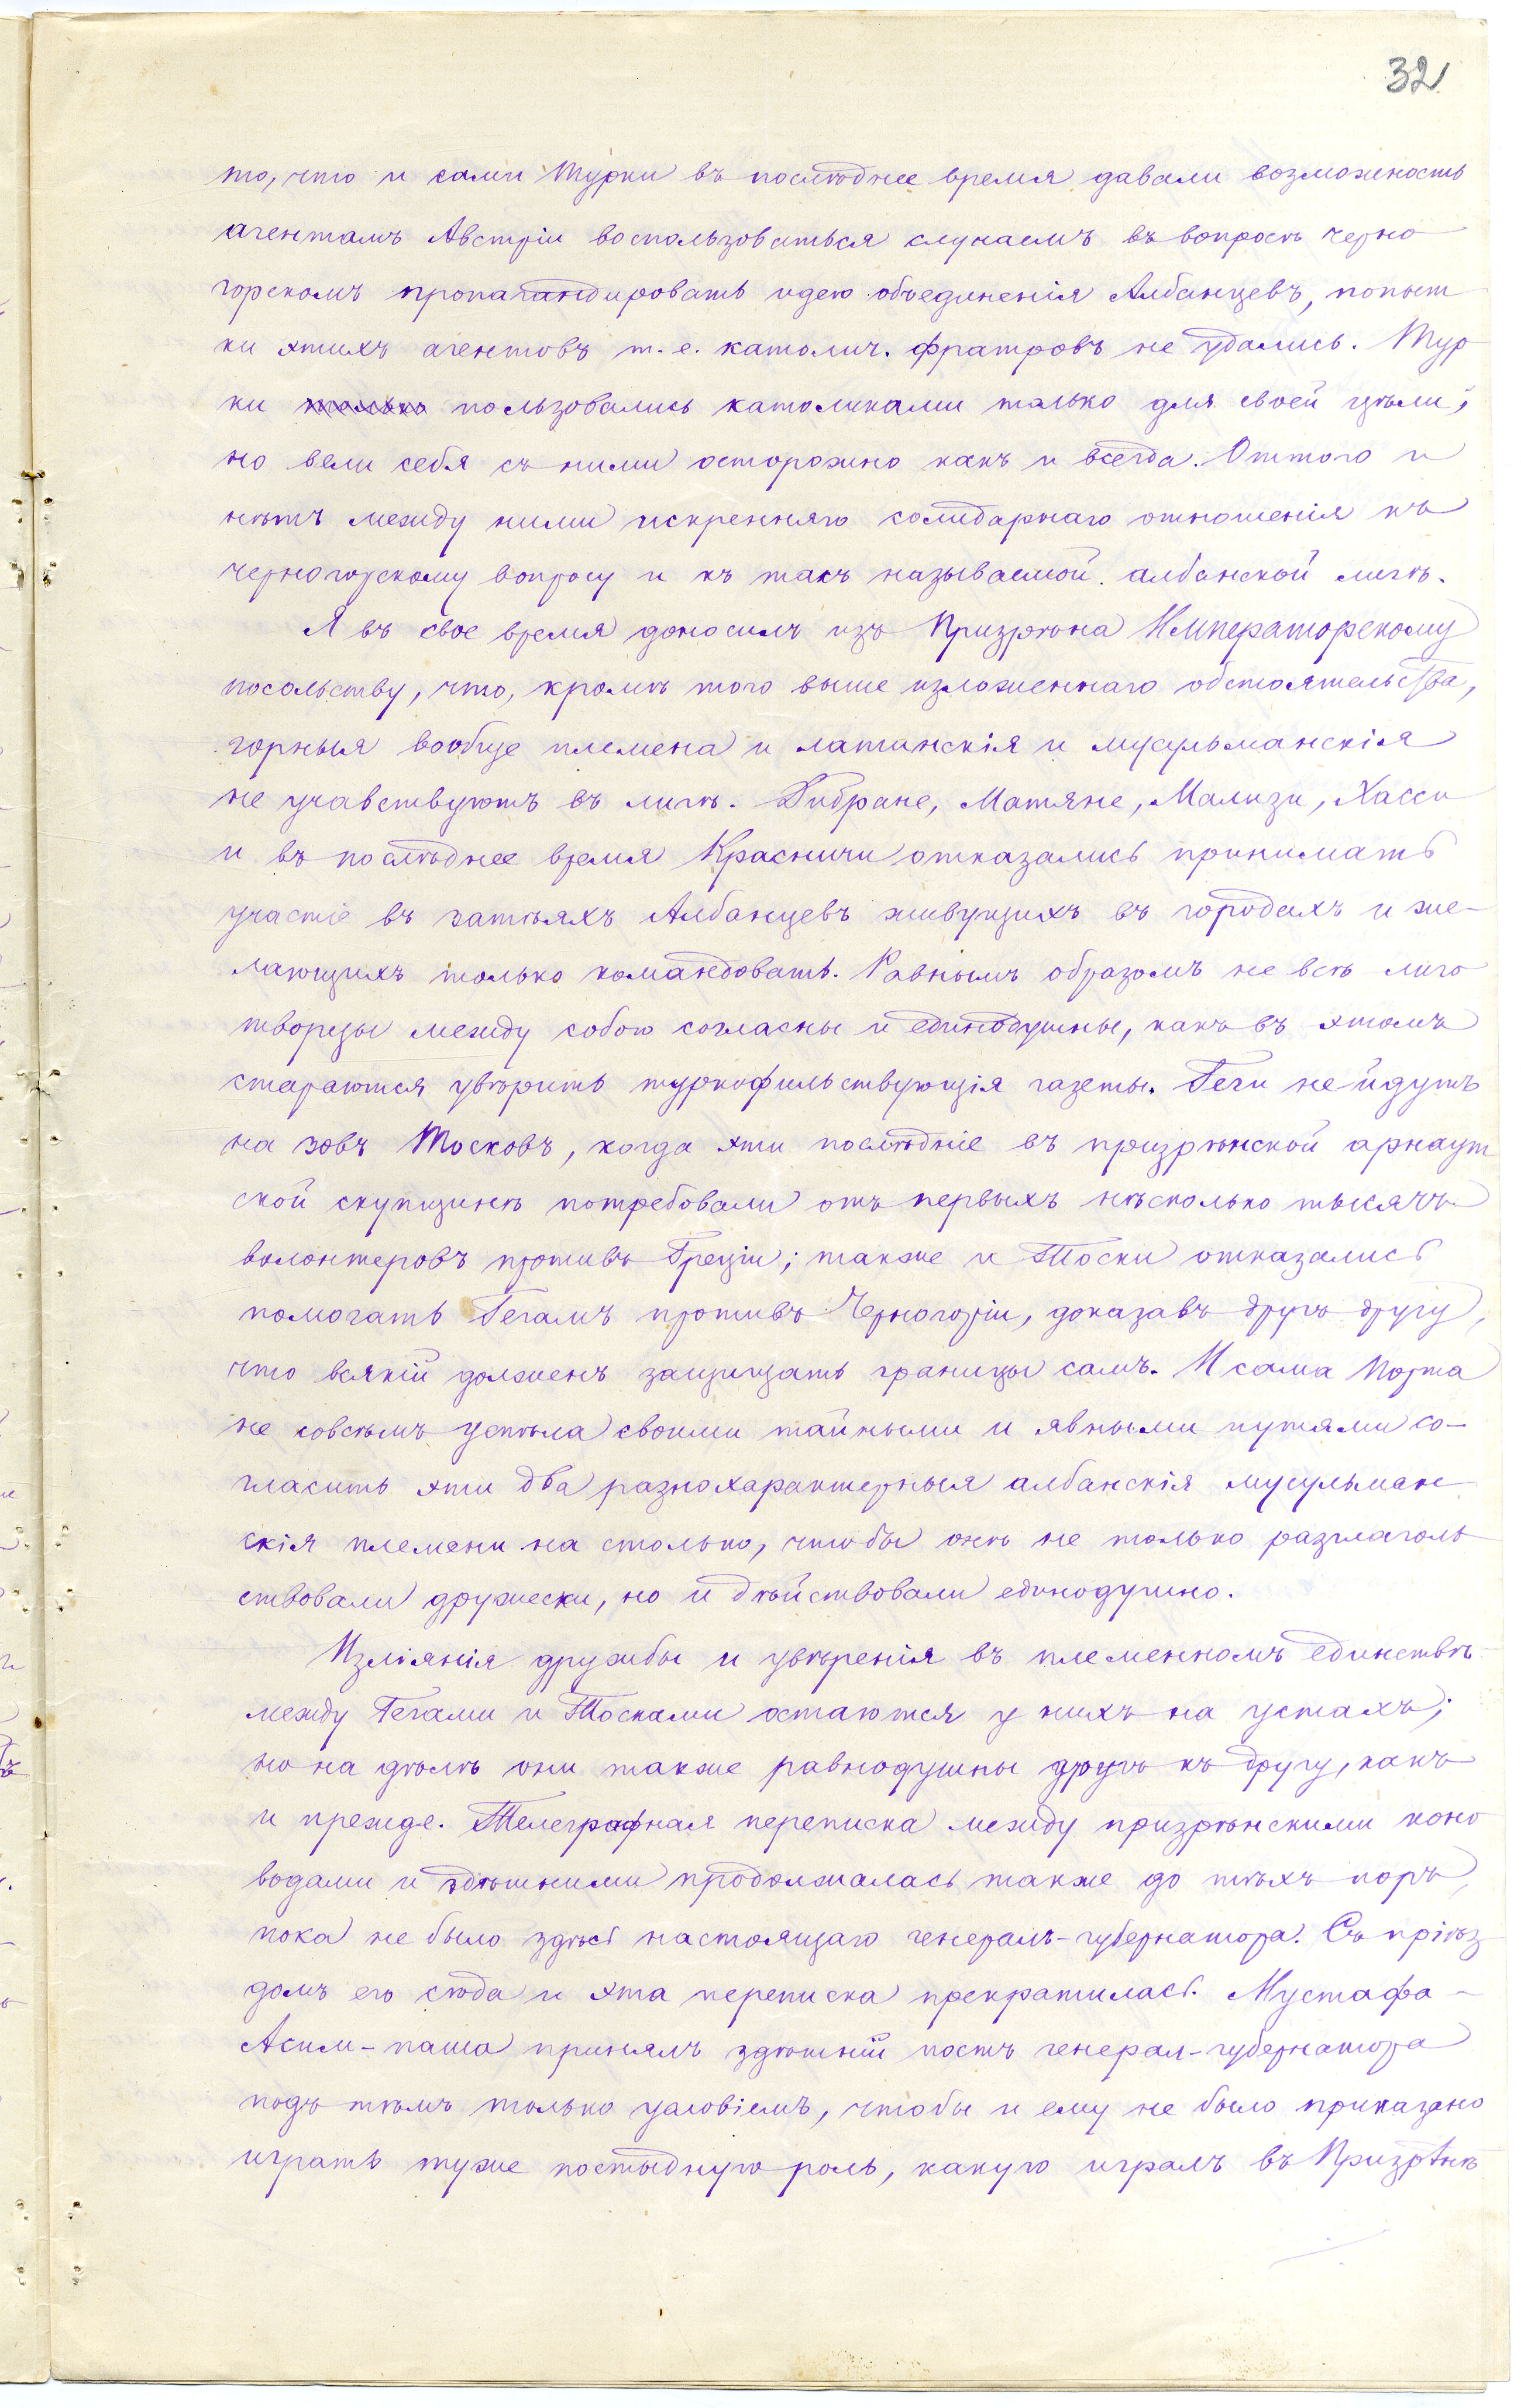 32
то, что и сами Турки въ последнее время давали возможность
агентамъ Австріи воспользоваться случаемъ въ вопросѣ черно
горскомъ пропагандировать идею объединенія Албанцевъ, попыт
ки этихъ агентовъ т. е. католич. фратровъ не удались. Тур
ки только пользовались католиками только для своей цѣли,
но вели себя съ ними осторожно какъ и всегда. Оттого и
нѣтъ между ними искренняго солидарнаго отношенія къ
черногорскому вопросу и къ такъ называемой албанской лигѣ.
Я въ свое время доносилъ изъ Призрѣна Императорскому
посольству, что, кромѣ того выше изложеннаго обстоятельства,
горныя вообще племена и латинскія и мусульманскія
не учавствуютъ въ лигѣ. Дибране, Матяне, Мализи, Хасси
и въ послѣднее время Красничи отказались принимать
участіе въ затѣяхъ Албанцевъ живущихъ въ городахъ и же-
лающихъ только командовать. Равнымъ образомъ не всѣ лиго
творцы между собою согласны и единодушны, какъ въ этомъ
стараются увѣрить туркофильствующія газеты. Геги не йдутъ
на зовъ Тосковъ, когда эти послѣдніе въ призрѣнской арнаут
ской скупщинѣ потребовали отъ первыхъ нѣсколько тысячъ
волонтеровъ противъ Греціи; также и Тоски отказались
помогать Гегамъ противъ Черногоріи, доказавъ другъ другу,
что всякій долженъ защищать границы самъ. И сама Порта
не совсѣмъ успѣла своими тайными и явными путями со-
гласить эти два разнохарактерныя албанскія мусульман
скія племени на столько, чтобы онѣ не только разглаголь
ствовали дружески, но и дѣйствовали единодушно.
Изліянія дружбы и увѣренія въ племенномъ единствѣ
между Гегами и Тосками остаются у нихъ на устахъ;
но на дѣлѣ они также равнодушны другъ къ другу, какъ
и прежде. Телеграфная переписка между призрѣнскими коно
водами и здѣшними продолжалась также до тѣхъ поръ,
пока не было здѣсь настоящаго генералъ-губернатора. Съ пріѣз
домъ его сюда и эта переписка прекратилась. Мустафа-
Асим-паша принялъ здѣшній постъ генерал-губернатора
подъ тѣмъ только условіемъ, чтобы и ему не было приказано
играть туже постыдную роль, какую игралъ въ Призрѣнѣ